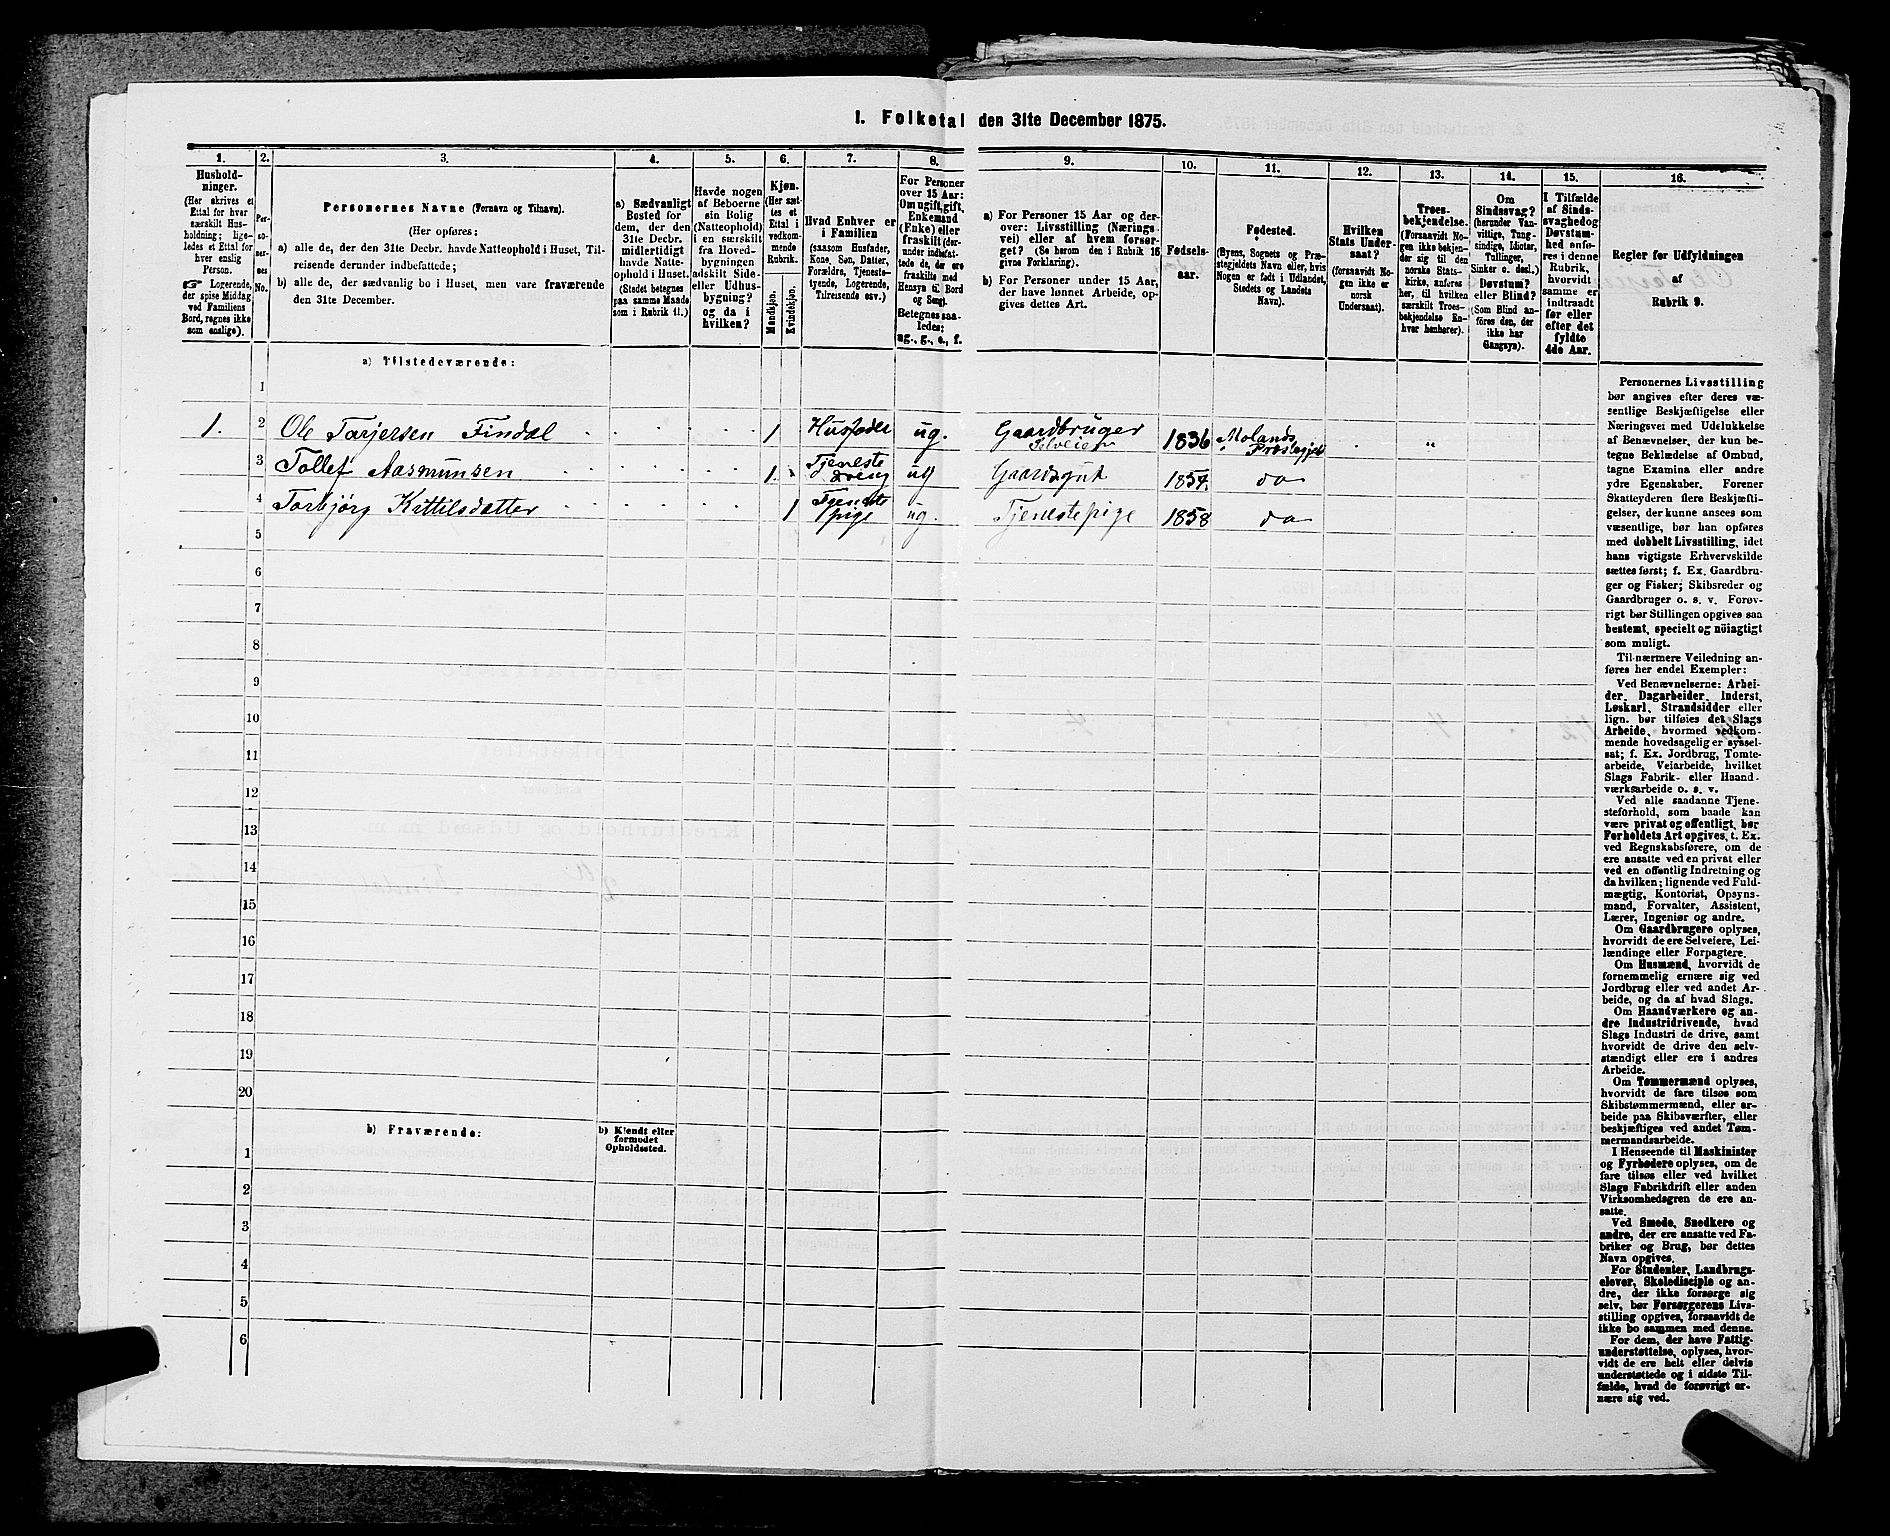 I. Folketal den 31te December 1875.
1.
Hushold-
ninger.
(Her skrives et
Ettal for hver
særskilt Hus-
holdning; lige-
ledes et Ettal for
hver enslig
Person.
☞ Logerende,
der spise Middag
ved Familiens
Bord, regnes ikke
som enslige).
2.
Per-
so-
ner-
nes
No.
3.
Personernes Navne (Fornavn og Tilnavn).
(Her opføres:
a) alle de, der den 31te Decbr. havde Natteophold i Huset, Til-
reisende derunder indbefattede;
b) alle de, der sædvanlig bo i Huset, men vare fraværende
den 31te December.
4.
a) Sædvanligt
Bosted for
dem, der den
31te Decbr.
midlertidigt
havde Natte-
ophold i Huset.
(Stedet betegnes
paa samme Maade
som i Rubrik 11.)
5.
Havde nogen
af Beboerne
sin Bolig
(Natteophold)
i en særskilt
fra Hoved-
bygningen
adskilt Side-
eller Udhus-
bygning?
og da i
hvilken?
6.
Kjøn.
(Her sæt-
tes et
Ettal i
vedkom-
mende
Rubrik.
Mandkjøn.
Kvindekjøn.
7.
Hvad Enhver er
i Familien
(saasom Husfader,
Kone, Søn, Datter,
Forældre, Tjeneste-
tyende, Logerende,
Tilreisende osv.)
8.
For Personer
over 15 Aar:
Om ugift, gift,
Enkemand
(Enke) eller
fraskilt (der-
under indbefat-
tede de, der ere
fraskilte med
Hensyn til Bord
og Seng).
Betegnes saa-
ledes:
ug., g., e., f.
9.
a) For Personer 15 Aar og der-
over: Livsstilling (Nærings-
vei) eller af hvem forsør-
get? (Se herom den i Rubrik 16
givne Forklaring).
b) For Personer under 15 Aar,
der have lønnet Arbeide, op-
gives dettes Art.
10.
Fødsels-
aar.
11.
Fødested.
(Byens, Sognets og Præ-
stegjeldets Navn eller, hvis
Nogen er født i Udlandet,
Stedets og Landets
Navn).
12.
Hvilken
Stats Under-
saat?
(forsaavidt No-
gen ikke er
norsk
Undersaat).
13.
Troes-
bekjendelse.
(Forsaavidt No-
gen ikke bekjen-
der sig til den
norske Stats-
kirke, anføres
her, til hvilken
særskilt Troes-
bekjendelse En-
hver henhører).
14.
Om
Sindssvag?
(herunder Van-
vittige, Tung-
sindige, Idioter,
Tullinger,
Sinker o. desl.)
Døvstum?
eller Blind?
(Som Blind an-
føres den, der
ikke har
Gangsyn).
15.
I Tilfælde
af Sinds-
svaghed og
Døvstum-
hed anfø-
res i denne
Rubrik,
hvorvidt
samme er
indtraadt
før eller
efter det
fyldte
4de Aar.
16.
Regler for Udfyldningen
af
Rubrik 9.
a) Tilstedeværende:
1
1. 2 Ole Tarjersen Findal 1 Husfader ug. Gaardbruger Selveier 1836 Molands Præstegjeld "
3 Tollef Aasmunsen 1. Tjeneste dreng ug Gaardsgut 1854. do
4 Torbjörg Kittilsdatter 1 Tjeneste pige ug. Tjenestepige 1858 do
5
6
7
8
9
10
11
12
13
14
15
16
17
18
19
20
b) Fraværende:
b) Kjendt eller
formodet
Opholdssted.
1
2
3
4
5
6
Personernes Livsstilling
bør angives efter deres væ-
sentlige Beskjæftigelse eller
Næringsvei med Udelukkelse
af Benævnelser, der kun be-
tegne Beklædelse af Ombud,
tagne Examina eller andre
ydre Egenskaber. Forener
Skatteyderen flere Beskjæfti-
gelser, der kunne ansees som
væsentlige, bør han opføres
med dobbelt Livsstilling, idet
hans vigtigste Erhvervskilde
sættes først; f. Ex. Gaardbru-
ger og Fisker; Skibsreder og
Gaardbruger o. s. v. Forøv-
rigt bør Stillingen opgives saa
bestemt, specielt og nöiagtigt
som muligt.
Til nærmere Veiledning an-
føres her endel Exempler:
Ved Benævnelserne: Arbei-
der, Dagarbeider, Inderst,
Løskarl, Strandsidder eller
lign. bør tilføies det Slags
Arbeide, hvormed vedkom-
mende hovedsagelig er syssel-
sat; f. Ex. Jordbrug, Tomte-
arbeide, Veiarbeide, hvilket
Slags Fabrik- eller Haand-
værksarbeide o. s. v.
Ved alle saadanne Tjene-
steforhold, som baade kan
være privat og offentligt, bør
Forholdets Art opgives, t. Ex.
ved Regnskabsførere, om de
ere ansatte ved en privat eller
ved en offentlig Indretning og
da hvilken; lignende ved Fuld-
mægtig, Kontorist, Opsyns-
mand, Forvalter, Assistent,
Lærer, Ingeniør og andre.
Om Gaardbrugere oplyses,
hvorvidt de ere Selveiere, Lei-
lændinge eller Forpagtere.
Om Husmænd, hvorvidt de
fornemmelig ernære sig ved
Jordbrug eller ved andet Ar-
beide, og da af hvad Slags.
Om Haandværkere og an-
dre Industridrivende, hvad
Slags Industri de drive, samt
hvorvidt de drive den selv-
stændigt eller ere i andres
Arbeide.
Om Tømmermænd oplyses,
hvorvidt de fare tilsøs som
Skibstømmermænd, eller ar-
beide paa Skibsværfter, eller
beskjæftiges ved andet Tøm-
mermandsarbeide.
I Henseende til Maskinister
og Fyrbødere oplyses, om de
fare tilsøs eller ved hvilket
Slags Fabrikdrift eller anden
Virksomhedsgren de ere an-
satte.
Ved Smede, Snedkere og
andre, der ere ansatte ved Fa-
briker og Brug, bør dettes
Navn opgives.
For Studenter, Landbrugs-
elever, Skoledisciple og an-
dre, der ikke forsørge sig
selv, bør Forsørgerens Livs-
stilling opgives, forsaavidt de
ikke bo sammen med denne.
For dem, der have Fattig-
understøttelse, oplyses, hvor-
vidt de ere helt eller delvis
understøttede og i sidste Til-
fælde, hvad de forøvrigt er-
nære sig ved.